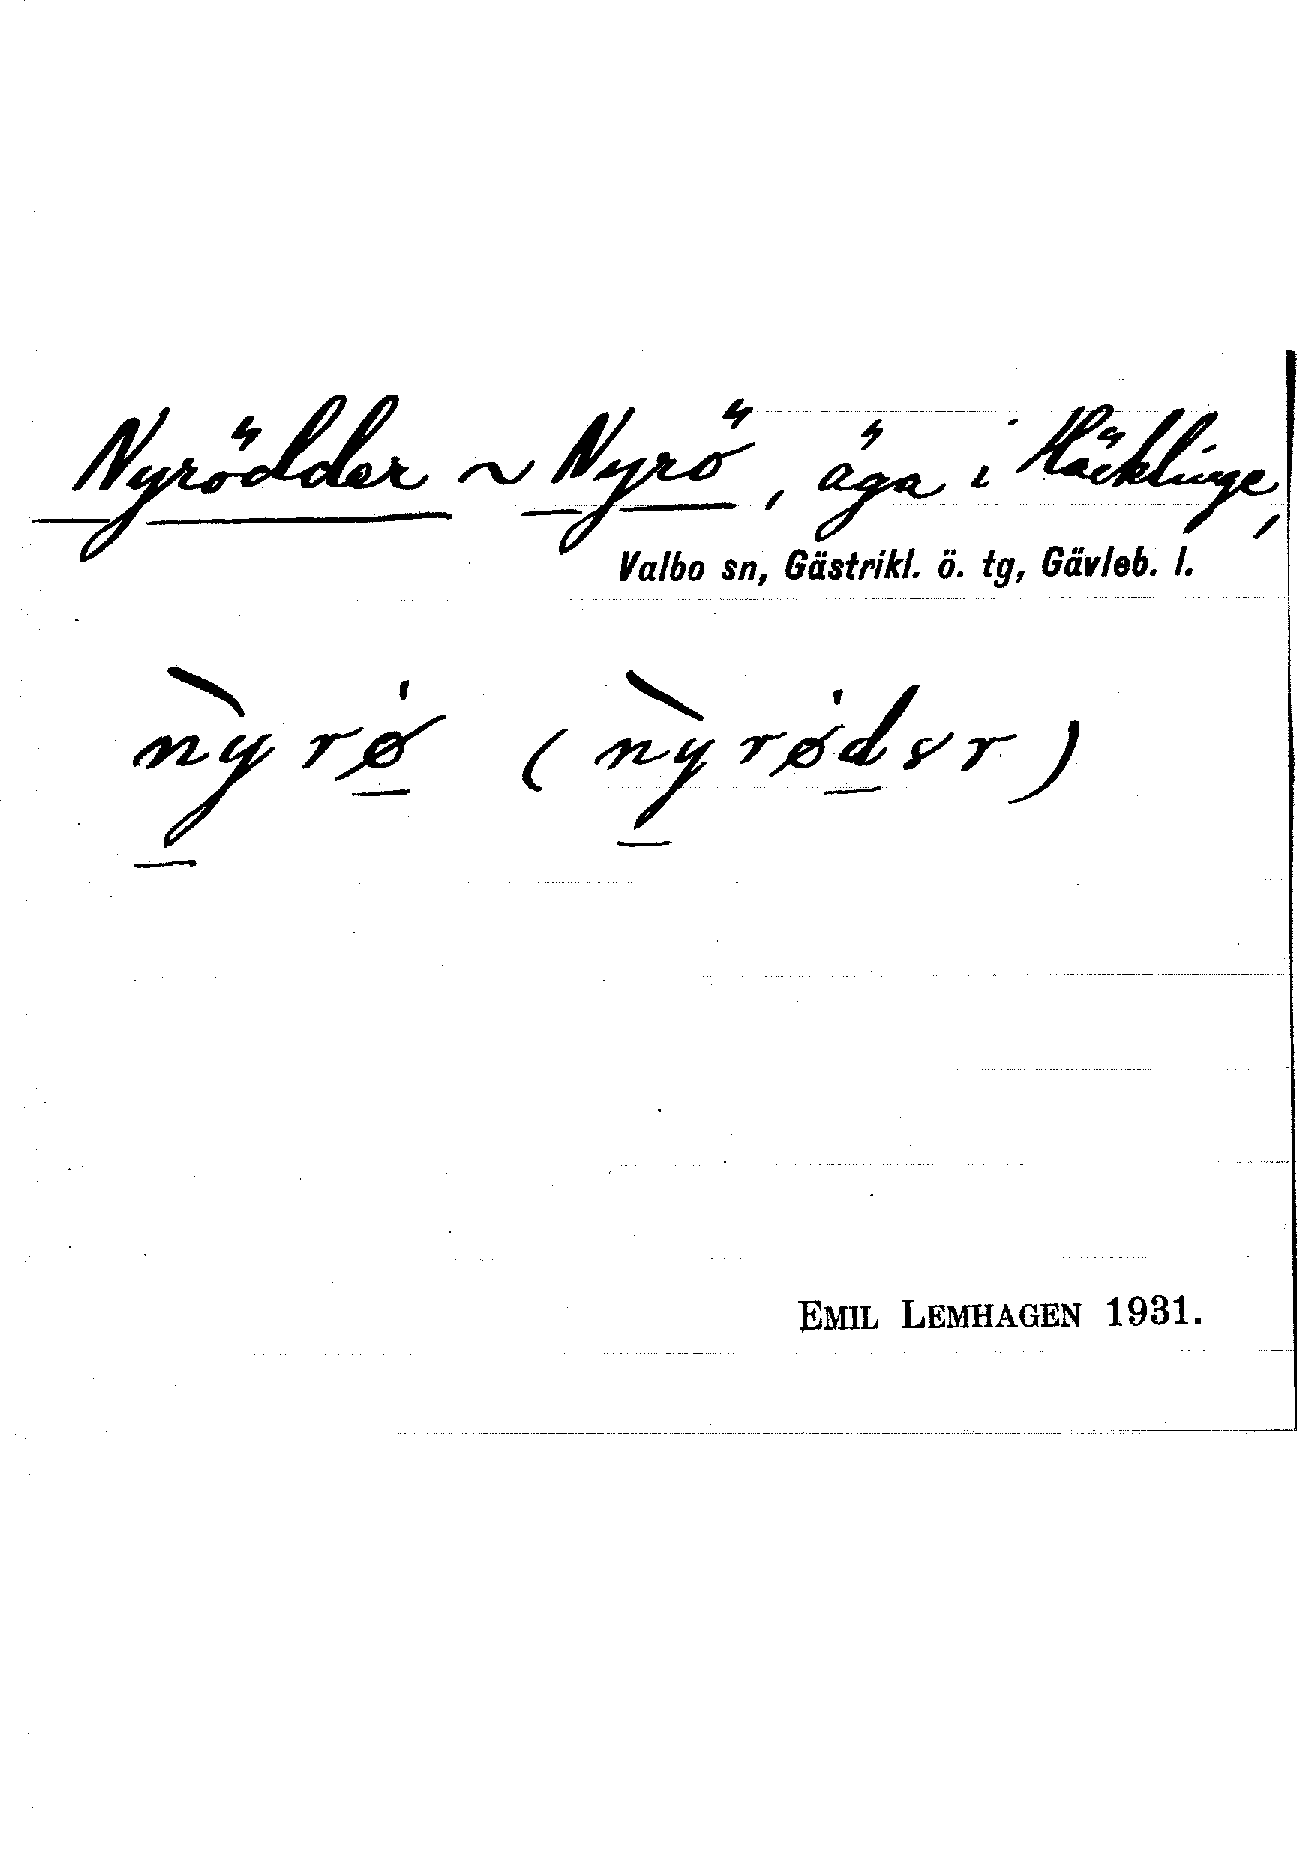 Nyrödder ~ Nyrö, äga i Häcklinge,
Valbo sn, Gästrikl. ö. tg, Gävleb. l.
nỳrø̍ (nỳrø̍dər)
EMIL LEMHAGEN 1931.